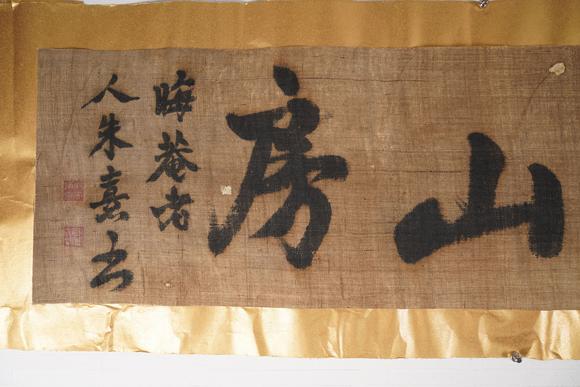 山房
晦菴老
人朱熹书